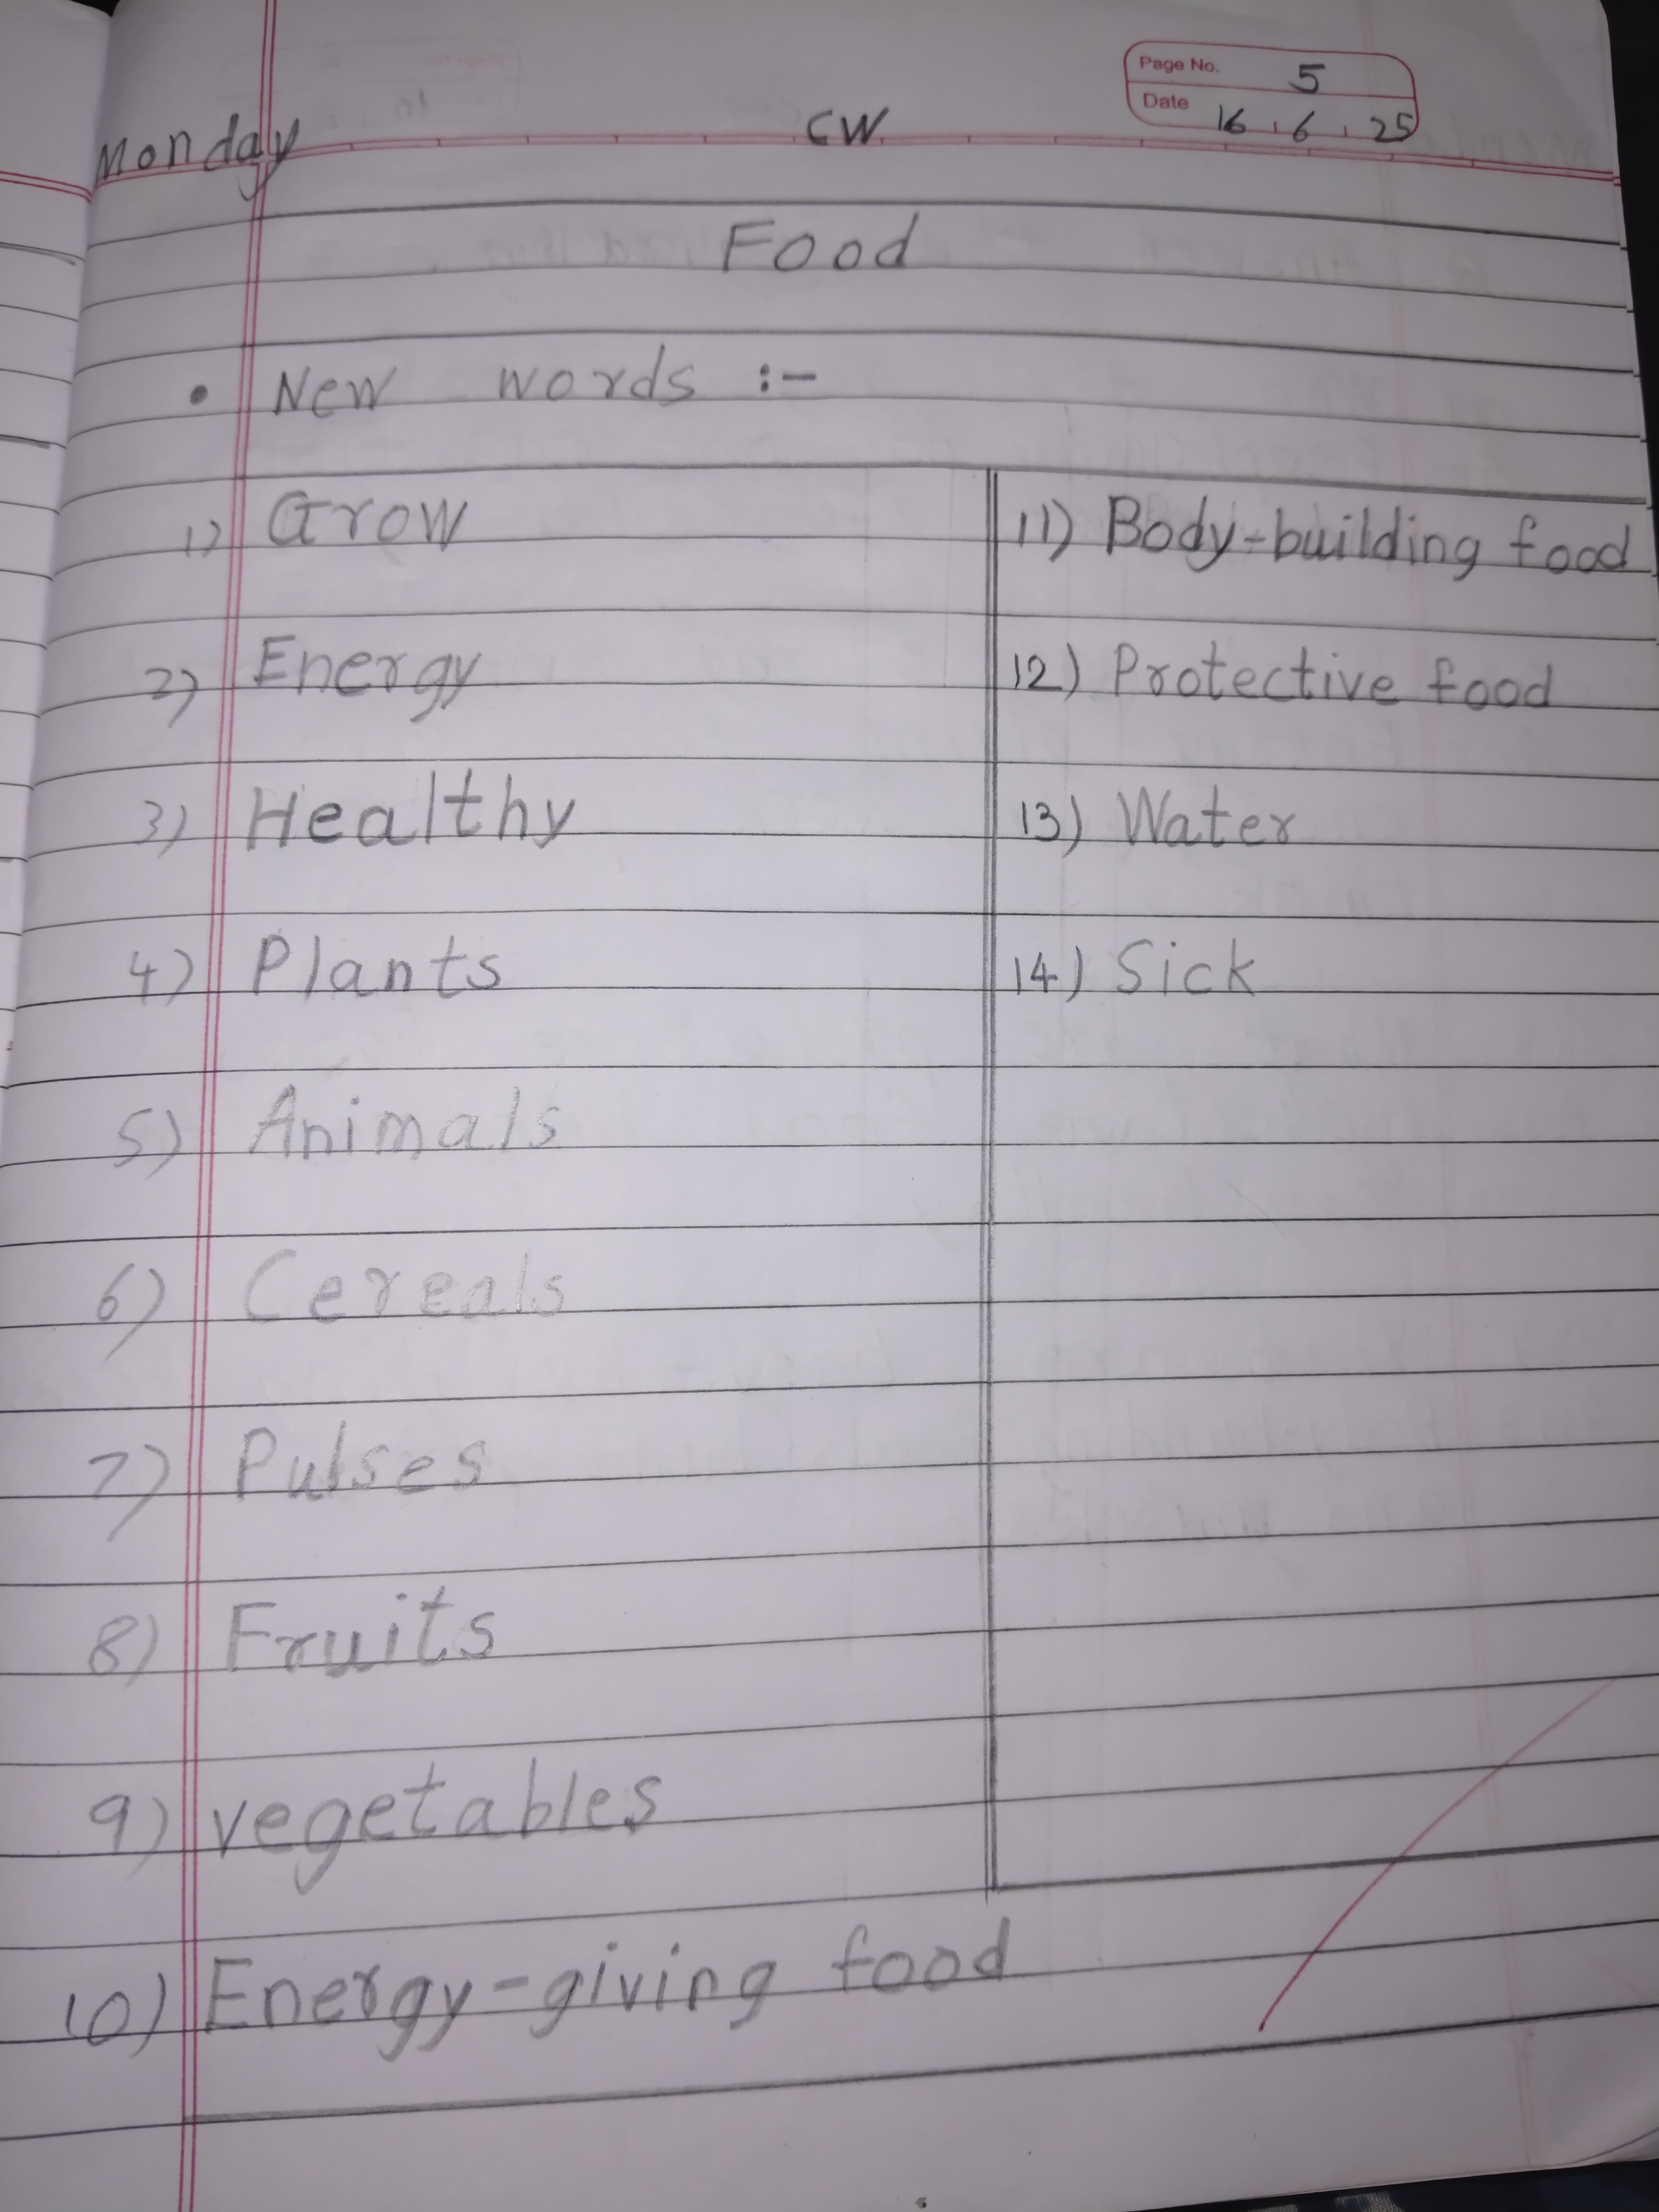 Page No. 5
Date 16.6.25
Monday CW
Food
• New words :-
1) Grow
2) Energy
3) Healthy
4) Plants
5) Animals
6) Cereals
7) Pulses
8) Fruits
9) vegetables
10) Energy-giving food
11) Body-building food
12) Protective food
13) Water
14) Sick